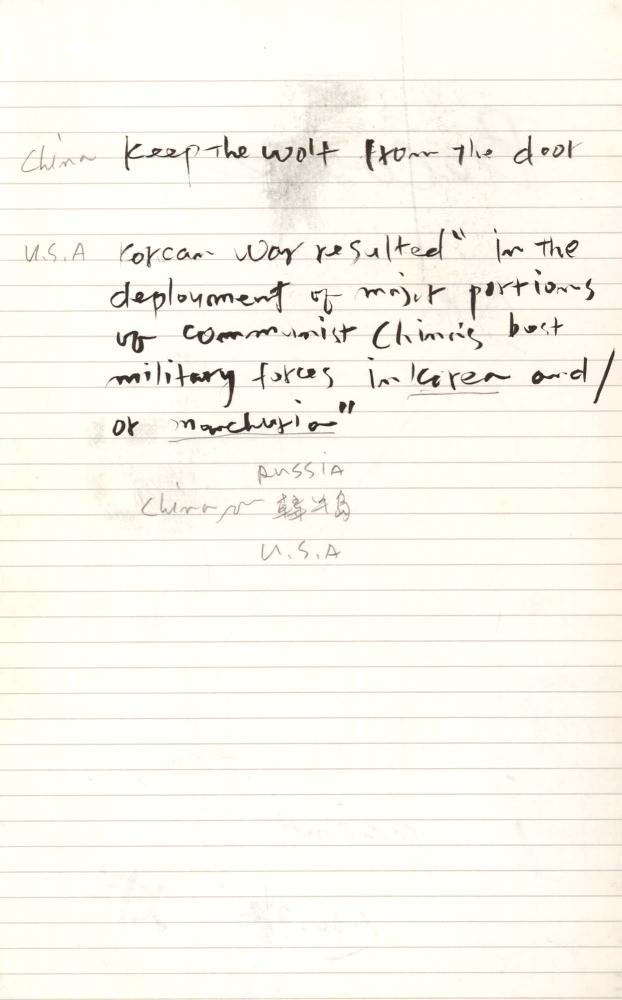 China Keep the wolf from the door
U.S.A Korean War resulted "in the
deployment of major portions
of communist China's best
military forces in Korea and/
or manchuria"
RUSSIA
China 韓半島
U.S.A